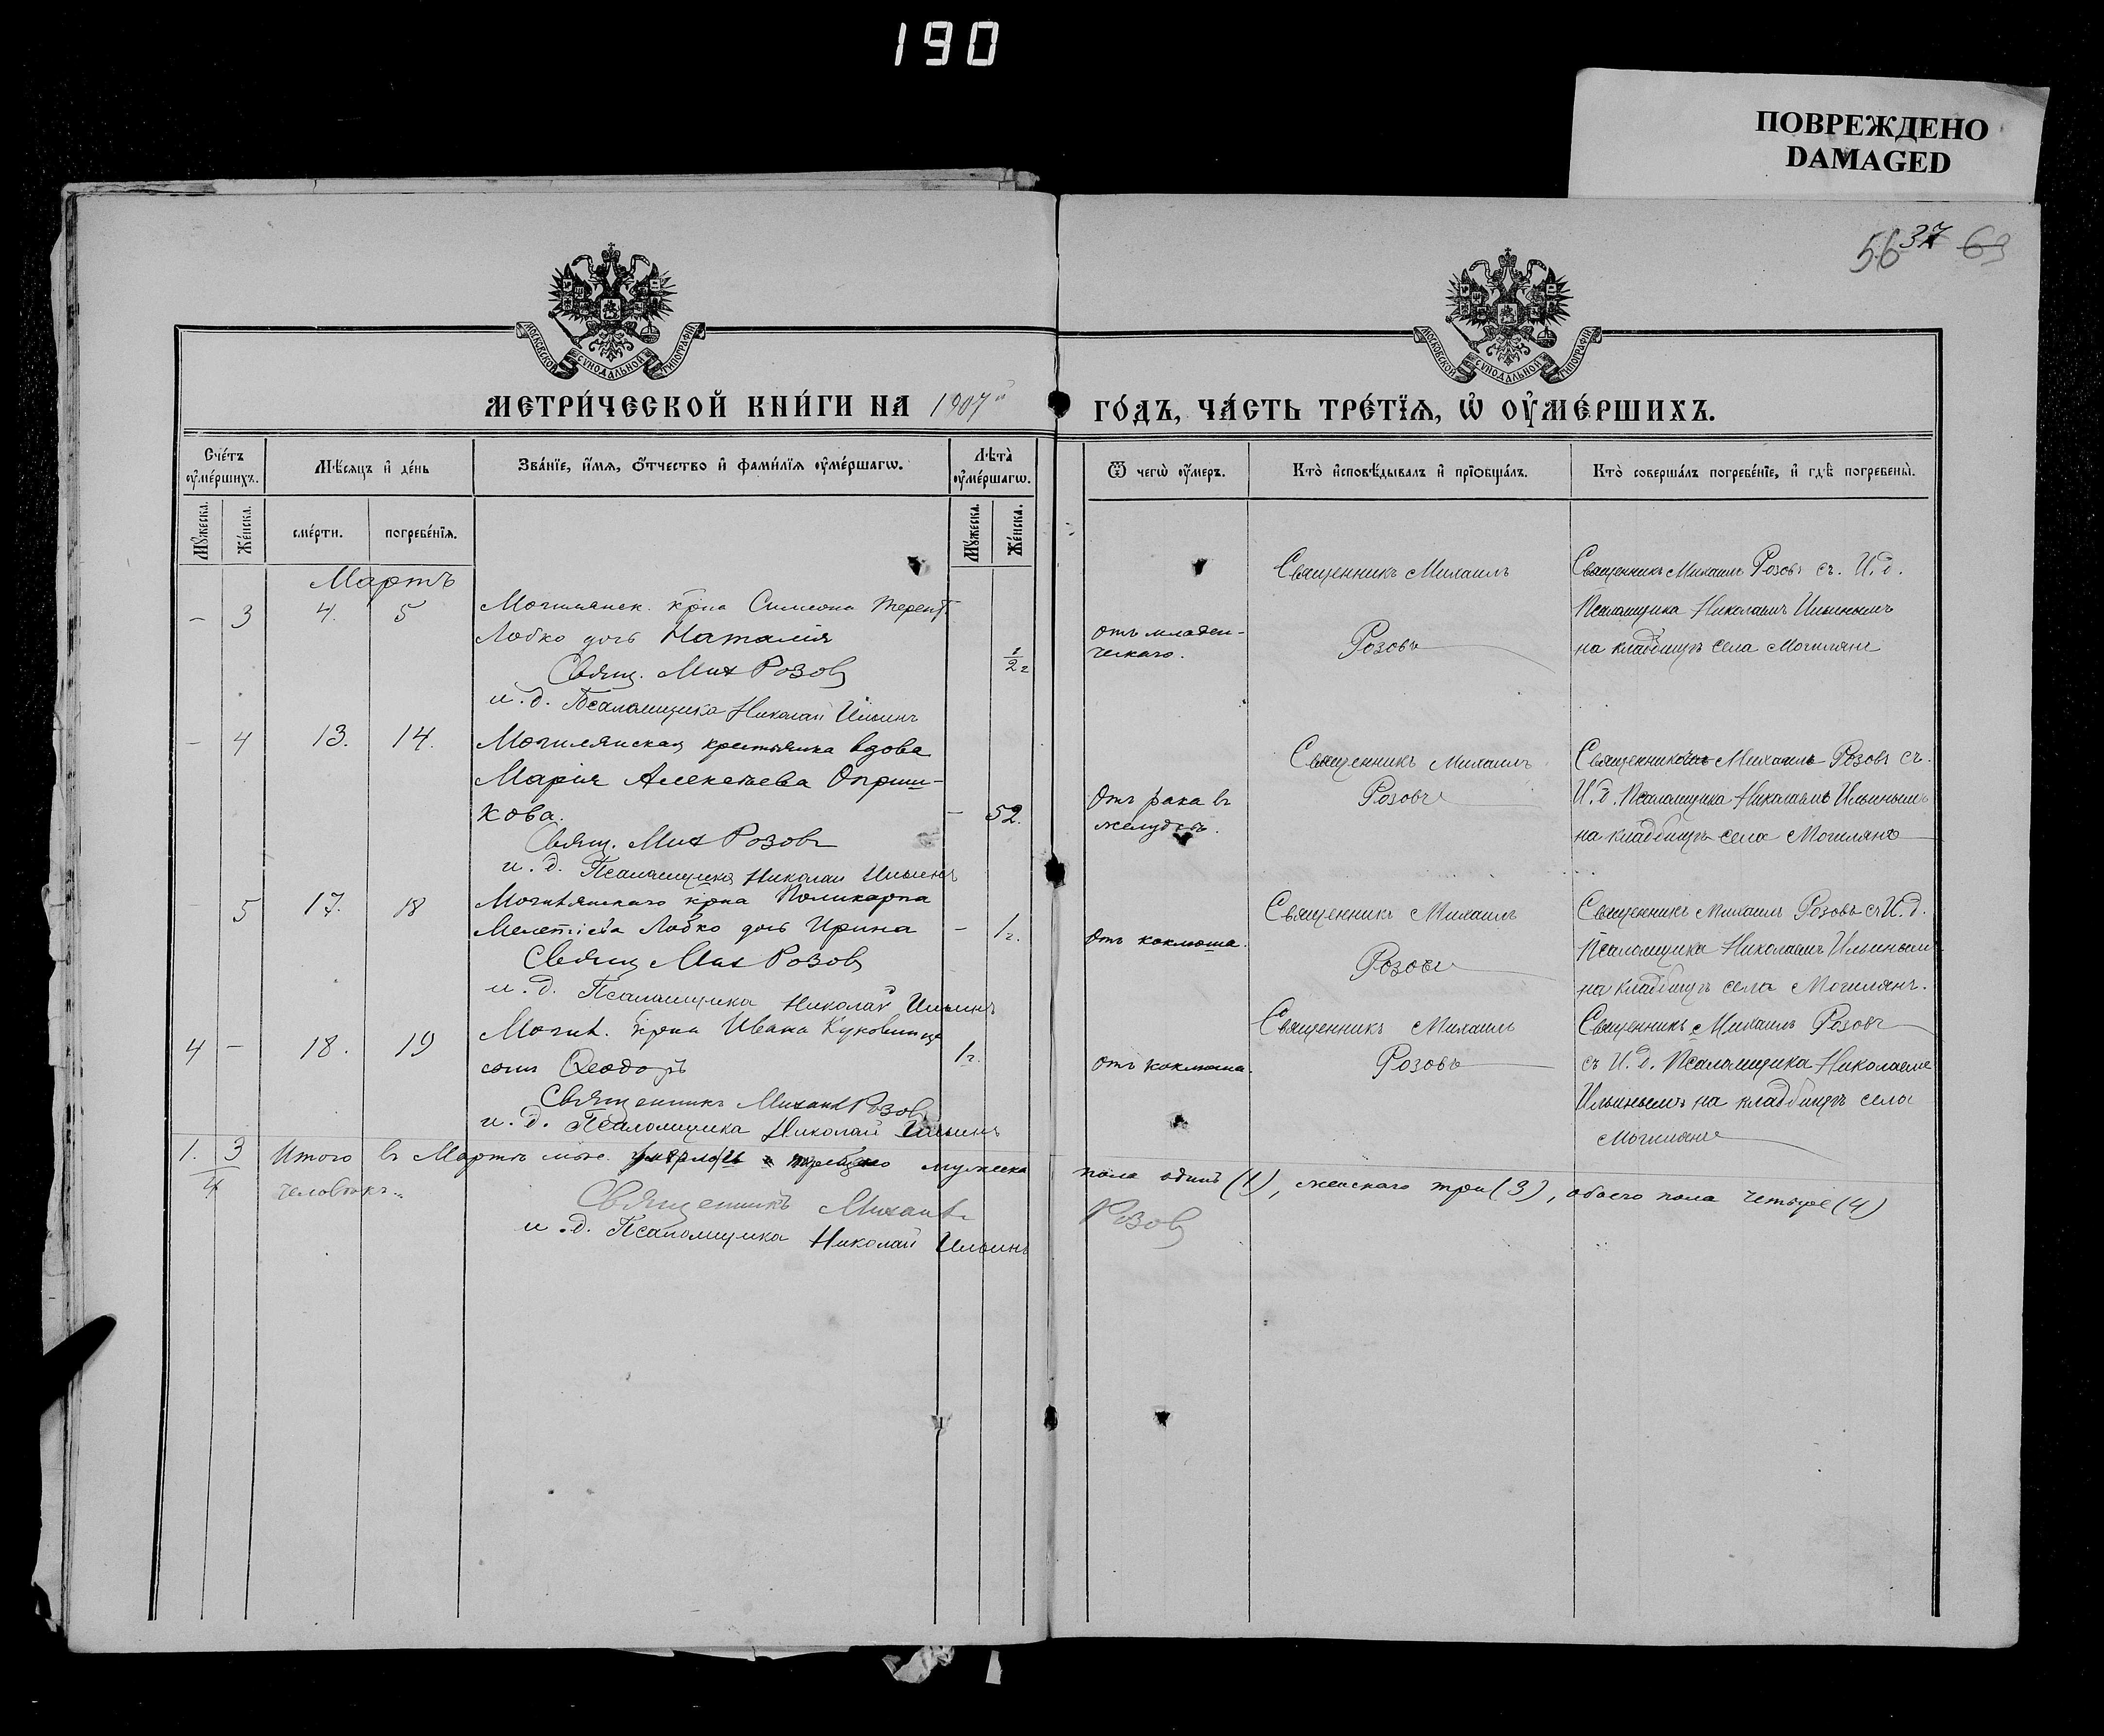 190
ПОВРЕЖДЕНО
DAMAGED
56 37 63
МОСКОВСКОЙ СѴНОДАЛЬНОЙ ТИПОГРАФІИ
МОСКОВСКОЙ СѴНОДАЛЬНОЙ ТИПОГРАФІИ
МЕТРИ́ЧЕСКОЙ КНИ́ГИ НА 1907й
ГО́ДЪ, ЧА́СТЬ ТРЕ́ТЇѦ, Ѡ҆ ОУ҆МЕ́РШИХЪ.
Сче́тъ оу҆ме́ршихъ.
Мѣ́сяцъ и҆ де́нь
Зва́нїе, и҆́мѧ, ѻ҆́тчество и҆ фами́лїѧ оу҆ме́ршагѡ.
Лѣ́та оу҆ме́ршагѡ.
Ѿ чегѡ̀ оу҆́меръ.
Кто̀ и҆сповѣ́дывалъ и҆ прїѻбща́лъ.
Кто̀ соверша́лъ погребе́нїе, и҆ гдѣ̀ погребены̀.
Мꙋ́жеска.
Же́нска.
сме́рти.
погребе́нїѧ.
Мꙋ́жеска.
Же́нска.
Мартъ
– 3 4. 5 Могилянск. крна Симеона Терент.
Лобко дочь Наталія
1/2 г
Свящ. Мих Розовъ
и. д. Псаломщика Николай Ильинъ
отъ младен-
ческаго.
Священникъ Михаилъ
Розовъ
Священникъ Михаилъ Розовъ съ И. д.
Псаломщика Николаемъ Ильинымъ
на кладбищѣ села Могилянъ
– 4 13. 14. Могилянская крестьянка вдова
Марія Алексѣева Оприш-
кова. – 52.
Свящ. Мих Розовъ
и. д. Псаломщика Николай Ильинъ
Отъ рака въ
желудкѣ.
Священникъ Михаилъ
Розовъ
Священникомъ Михаилъ Розовъ съ
И. д. Псаломщика Николаемъ Ильинымъ
на кладбищѣ села Могилянъ
5 17. 18 Могилянскаго крна Поликарпа
Мелетіева Лобко дочь Ирина – 1 г.
Свящ Мих Розовъ
и. д. Псаломщика Николай Ильинъ
Отъ коклюша.
Священникъ Михаилъ
Розовъ
Священникъ Михаилъ Розовъ съ И. д.
Псаломщика Николаемъ Ильиным
на кладбищѣ села Могилянъ.
4 – 18. 19 Могил. крна Ивана Куковинца
сынъ Ѳеодоръ 1 г.
Священникъ Михаил Розовъ
и. д. Псаломщика Николай Ильинъ
Отъ коклюша.
Священникъ Михаилъ
Розовъ
Священникъ Михаилъ Розовъ
съ И. д. Псаломщика Николаемъ
Ильинымъ на кладбищѣ села
Могилянъ
1. 3 Итого въ Мартѣ мѣс. умерло мужска
пола одинъ (1), женскаго три (3), обоего пола четыре (4)
4 человѣкъ.
Священникъ Михаил
Розовъ
и. д. Псаломщика Николай Ильинъ